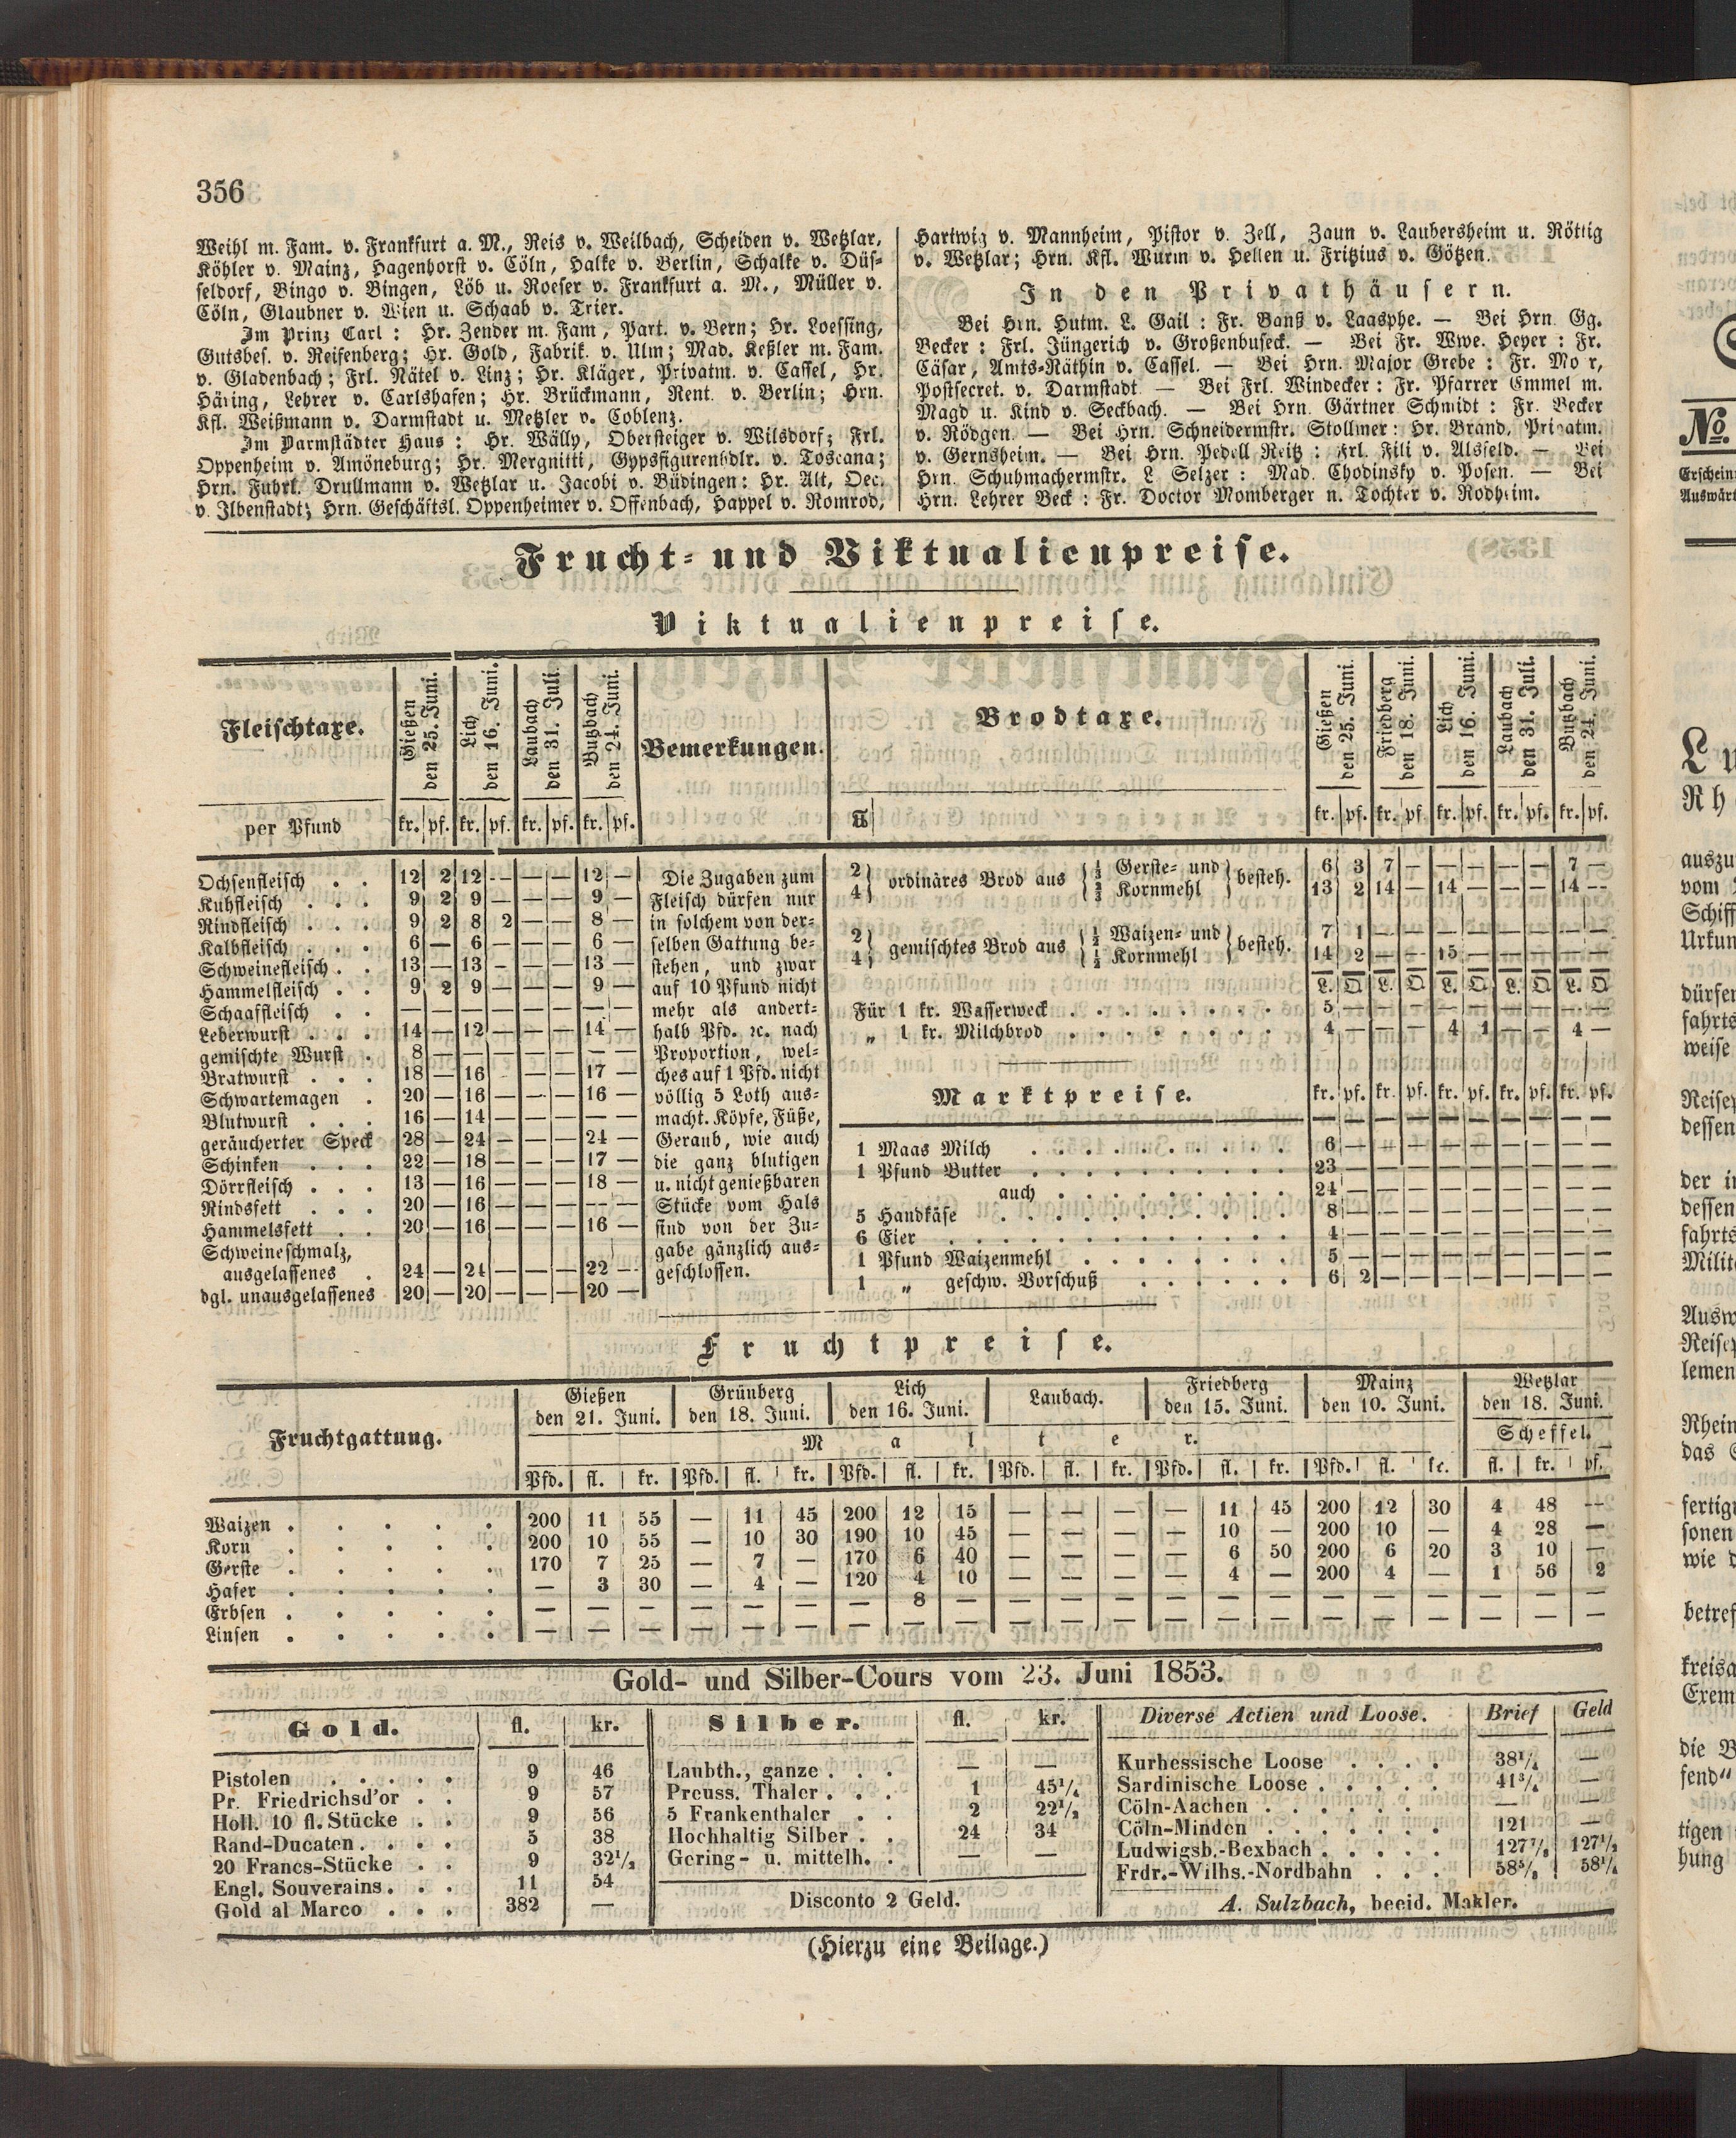 356
Weihl m. Fam. v. Frankfurt a. M., Reis v. Weilbach, Scheiden v. Wetzlar,
Köhler v. Mainz, Hagenhorst v. Cöln, Halke v. Berlin, Schalke v. Düs-
seldorf, Bingo v. Bingen, Löb u. Roeser v. Frankfurt a. M., Müller v.
Cöln, Glaubner v. Wien u. Schaab v. Trier.
Im Prinz Carl : Hr. Zender m. Fam, Part. v. Bern; Hr. Loessing,
Gutsbes. v. Reifenberg; Hr. Gold, Fabrik. v. Ulm; Mad. Keßler m. Fam.
v. Gladenbach; Frl. Nätel v. Linz; Hr. Kläger, Privatm. v. Cassel, Hr.
Häring, Lehrer v. Carlshafen; Hr. Brückmann, Rent. v. Berlin; Hrn.
Kfl. Weißmann v. Darmstadt u. Metzler v. Coblenz.
Im Darmstädter Haus : Hr. Wälly, Obersteiger v. Wilsdorf; Frl.
Oppenheim v. Amöneburg; Hr. Mergnitti, Gypsfigurenhdlr. v. Toscana;
Hrn. Fuhrl. Drullmann v. Wetzlar u. Jacobi v. Büdingen: Hr. Alt, Oec.
v. Ilbenstadt; Hrn. Geschäftsl. Oppenheimer v. Offenbach, Happel v. Romrod,
Hartwig v. Mannheim, Pistor v. Zell, Zaun v. Laubersheim u. Röttig
v. Wetzlar; Hrn. Kfl. Wurm v. Hellen u. Fritzius v. Götzen.
In den Privathäusern.
Bei Hrn. Hutm. L. Gail : Fr. Banß v. Laasphe. — Bei Hrn Gg.
Becker : Frl. Jüngerich v. Großenbuseck. — Bei Fr. Wwe. Heyer : Fr.
Cäsar, Amts-Räthin v. Cassel. — Bei Hrn. Major Grebe : Fr. Mo r,
Postsecret. v. Darmstadt — Bei Frl. Windecker : Fr. Pfarrer Emmel m.
Magd u. Kind v. Seckbach. — Bei Hrn. Gärtner Schmidt : Fr. Becker
v. Rödgen. — Bei Hrn. Schneidermstr. Stollmer : Hr. Brand, Privatm.
v. Gernsheim. — Bei Hrn. Pedell Reitz : Frl. Fili v. Alsfeld. — Bei
Hrn. Schuhmachermstr. L Selzer : Mad. Chodinsky v. Posen. — Bei
Hrn. Lehrer Beck : Fr. Doctor Momberger n. Tochter v. Rodheim.
Frucht- und Viktualienpreise.
Viktualienpreise.
Fleischtaxe. Gießen den 25. Juni. Lich den 16. Juni. Laubach den 31. Juli. Butzbach den 24. Juni. Bemerkungen.
per Pfund kr. pf. kr. pf. kr. pf. kr. pf.
Ochsenfleisch . . 12 2 12 — — — 12 —
Kuhfleisch . . . 9 2 9 — — — 9 —
Rindfleisch . . . 9 2 8 2 — — 8 —
Kalbfleisch . . . 6 — 6 — — — 6 —
Schweinefleisch . . 13 — 13 — — — 13 —
Hammelfleisch . . 9 2 9 — — — 9 —
Schaaffleisch . . — — — — — — — —
Leberwurst . . . 14 — 12 — — — 14 —
gemischte Wurst . 8 — — — — — — —
Bratwurst . . . 18 — 16 — — — 17 —
Schwartemagen . 20 — 16 — — — 16 —
Blutwurst . . . 16 — 14 — — — — —
geräucherter Speck 28 — 24 — — — 24 —
Schinken . . . 22 — 18 — — — 17 —
Dörrfleisch . . . 13 — 16 — — — 18 —
Rindsfett . . . 20 — 16 — — — — —
Hammelsfett . . 20 — 16 — — — 16 —
Schweineschmalz,
ausgelassenes . 24 — 24 — — — 22 —
dgl. unausgelassenes 20 — 20 — — — 20 —
Die Zugaben zum
Fleisch dürfen nur
in solchem von der-
selben Gattung be-
stehen, und zwar
auf 10 Pfund nicht
mehr als andert-
halb Pfd. ꝛc. nach
Proportion, wel-
ches auf 1 Pfd. nicht
völlig 5 Loth aus-
macht. Köpfe, Füße,
Geraub, wie auch
die ganz blutigen
u. nicht genießbaren
Stücke vom Hals
sind von der Zu-
gabe gänzlich aus-
geschlossen.
Brodtaxe. Gießen den 25. Juni. Friedberg den 18. Juni. Lich den 16. Juni. Laubach den 31. Juli. Butzbach den 24. Juni.
kr. pf. kr. pf. kr. pf. kr. pf. kr. pf.
2 } ordinäres Brod aus { Gerste- und } besteh. 6 3 7 — — — — — 7 —
4 } Kornmehl 13 2 14 — 14 — — — 14 —
2 } gemischtes Brod aus { ½ Waizen- und } besteh. 7 1 — — — — — — — —
4 } ½ Kornmehl 14 2 — — 15 — — — — —
L. Q. L. Q. L. Q. L. Q. L. Q.
Für 1 kr. Wasserweck . . . . . . . . 5 — — — — — — — — —
„ 1 kr. Milchbrod . . . . . . . . 4 — — — 4 1 — — 4 —
Marktpreise. kr. pf. kr. pf. kr. pf. kr. pf. kr. pf.
1 Maas Milch . . . . . . . . . 6 — — — — — — — — —
1 Pfund Butter . . . . . . . . . 23 — — — — — — — — —
auch . . . . . . . . 24 — — — — — — — — —
5 Handkäse . . . . . . . . . . 8 — — — — — — — — —
6 Eier . . . . . . . . . . . . 4 — — — — — — — — —
1 Pfund Waizenmehl . . . . . . . 5 — — — — — — — — —
1 „ geschw. Vorschuß . . . . . . 6 2 — — — — — — — —
Fruchtpreise.
Fruchtgattung. Gießen den 21. Juni. Grünberg den 18. Juni. Lich den 16. Juni. Laubach. Friedberg den 15. Juni. Mainz den 10. Juni. Wetzlar den 18. Juni.
Malter. Scheffel.
Pfd. fl. kr. Pfd. fl. kr. Pfd. fl. kr. Pfd. fl. kr. Pfd. fl. kr. Pfd. fl. kr. fl. kr. pf.
Waizen . . . . . 200 11 55 — 11 45 200 12 15 — — — — 11 45 200 12 30 4 48 —
Korn . . . . . 200 10 55 — 10 30 190 10 45 — — — — 10 — 200 10 — 4 28 —
Gerste . . . . . 170 7 25 — 7 — 170 6 40 — — — — 6 50 200 6 20 3 10 —
Hafer . . . . . — 3 30 — 4 — 120 4 10 — — — — 4 — 200 4 — 1 56 2
Erbsen . . . . . — — — — — — — 8 — — — — — — — — — — — — —
Linsen . . . . . — — — — — — — — — — — — — — — — — — — — —
Gold- und Silber-Cours vom 23. Juni 1853.
Gold. fl. kr.
Pistolen . . . . . 9 46
Pr. Friedrichsd'or . . 9 57
Holl. 10 fl. Stücke . . 9 56
Rand-Ducaten . . . . 5 38
20 Francs-Stücke . . 9 32½
Engl. Souverains . . . 11 54
Gold al Marco . . . 382 —
Silber. fl. kr.
Laubth., ganze . . . — —
Preuss. Thaler . . . 1 45¼
5 Frankenthaler . . 2 22½
Hochhaltig Silber . . 24 34
Gering- u. mittelh. . — —
Disconto 2 Geld.
Diverse Actien und Loose. Brief Geld
Kurhessische Loose . . . . 38¼ —
Sardinische Loose . . . . . 41¾ —
Cöln-Aachen . . . . . . — —
Cöln-Minden . . . . . . . 121 —
Ludwigsb.-Bexbach . . . . . 127⅞ 127½
Frdr.-Wilhs.-Nordbahn . . . 58⅝ 58¼
A. Sulzbach, beeid. Makler.
(Hierzu eine Beilage.)
No.
Erschein
Auswärt
L
Rh
auszu
vom
Schiff
Urkun
dürfen
fahrts
weise
Reisep
dessen
der i
dessen
fahrts
Milit
Ausw
Reisep
lemen
Rhein
das
fertig
sonen
wie d
betref
kreisa
Exem
die B
send"
tigen
hung